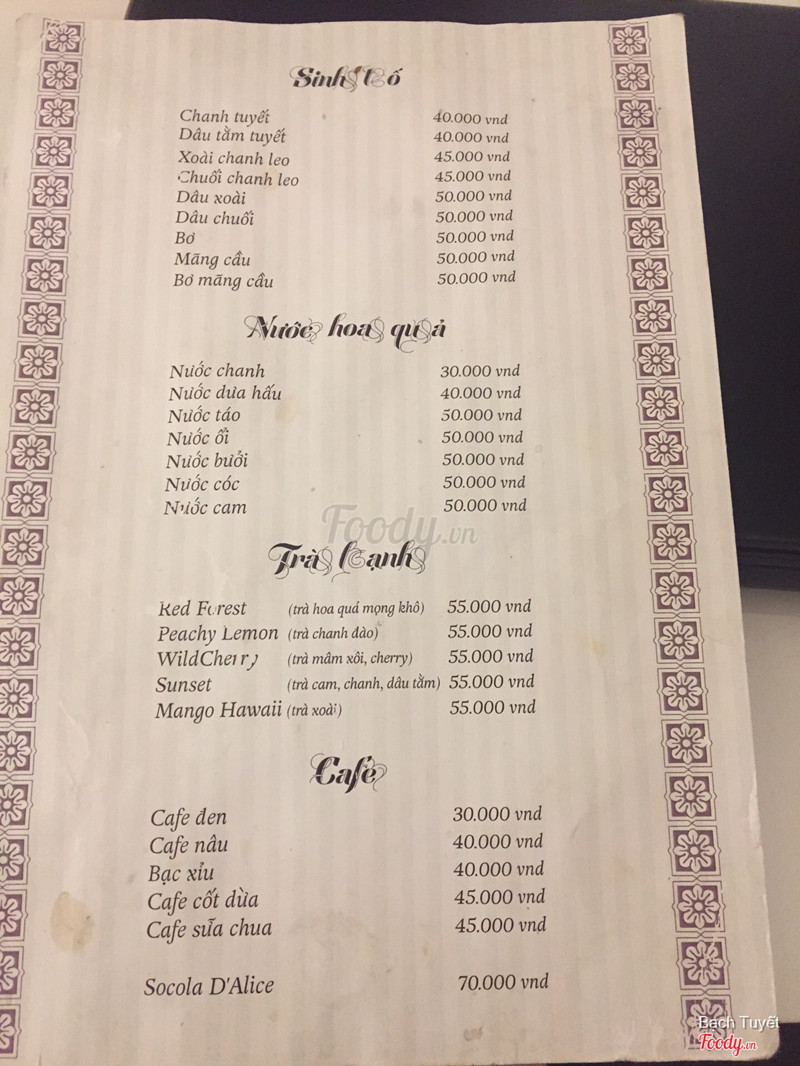 Sinh tố
Chanh tuyết 40.000 vnd
Dâu tằm tuyết 40.000 vnd
Xoài chanh leo 45.000 vnd
Chuối chanh leo 45.000 vnd
Dâu xoài 50.000 vnd
Dâu chuối 50.000 vnd
Bơ 50.000 vnd
Mãng cầu 50.000 vnd
Bơ mãng cầu 50.000 vnd
Nước hoa quả
Nước chanh 30.000 vnd
Nước dưa hấu 40.000 vnd
Nước táo 50.000 vnd
Nước ổi 50.000 vnd
Nước bưởi 50.000 vnd
Nước cóc 50.000 vnd
Nước cam 50.000 vnd
Foody.vn
Trà lạnh
Red Forest (trà hoa quả mọng khô) 55.000 vnd
Peachy Lemon (trà chanh đào) 55.000 vnd
WildCherry (trà mâm xôi, cherry) 55.000 vnd
Sunset (trà cam, chanh, dâu tằm) 55.000 vnd
Mango Hawaii (trà xoài) 55.000 vnd
Cafe
Cafe đen 30.000 vnd
Cafe nâu 40.000 vnd
Bạc xỉu 40.000 vnd
Cafe cốt dừa 45.000 vnd
Cafe sữa chua 45.000 vnd
Socola D'Alice 70.000 vnd
Bạch Tuyết
Foody.vn